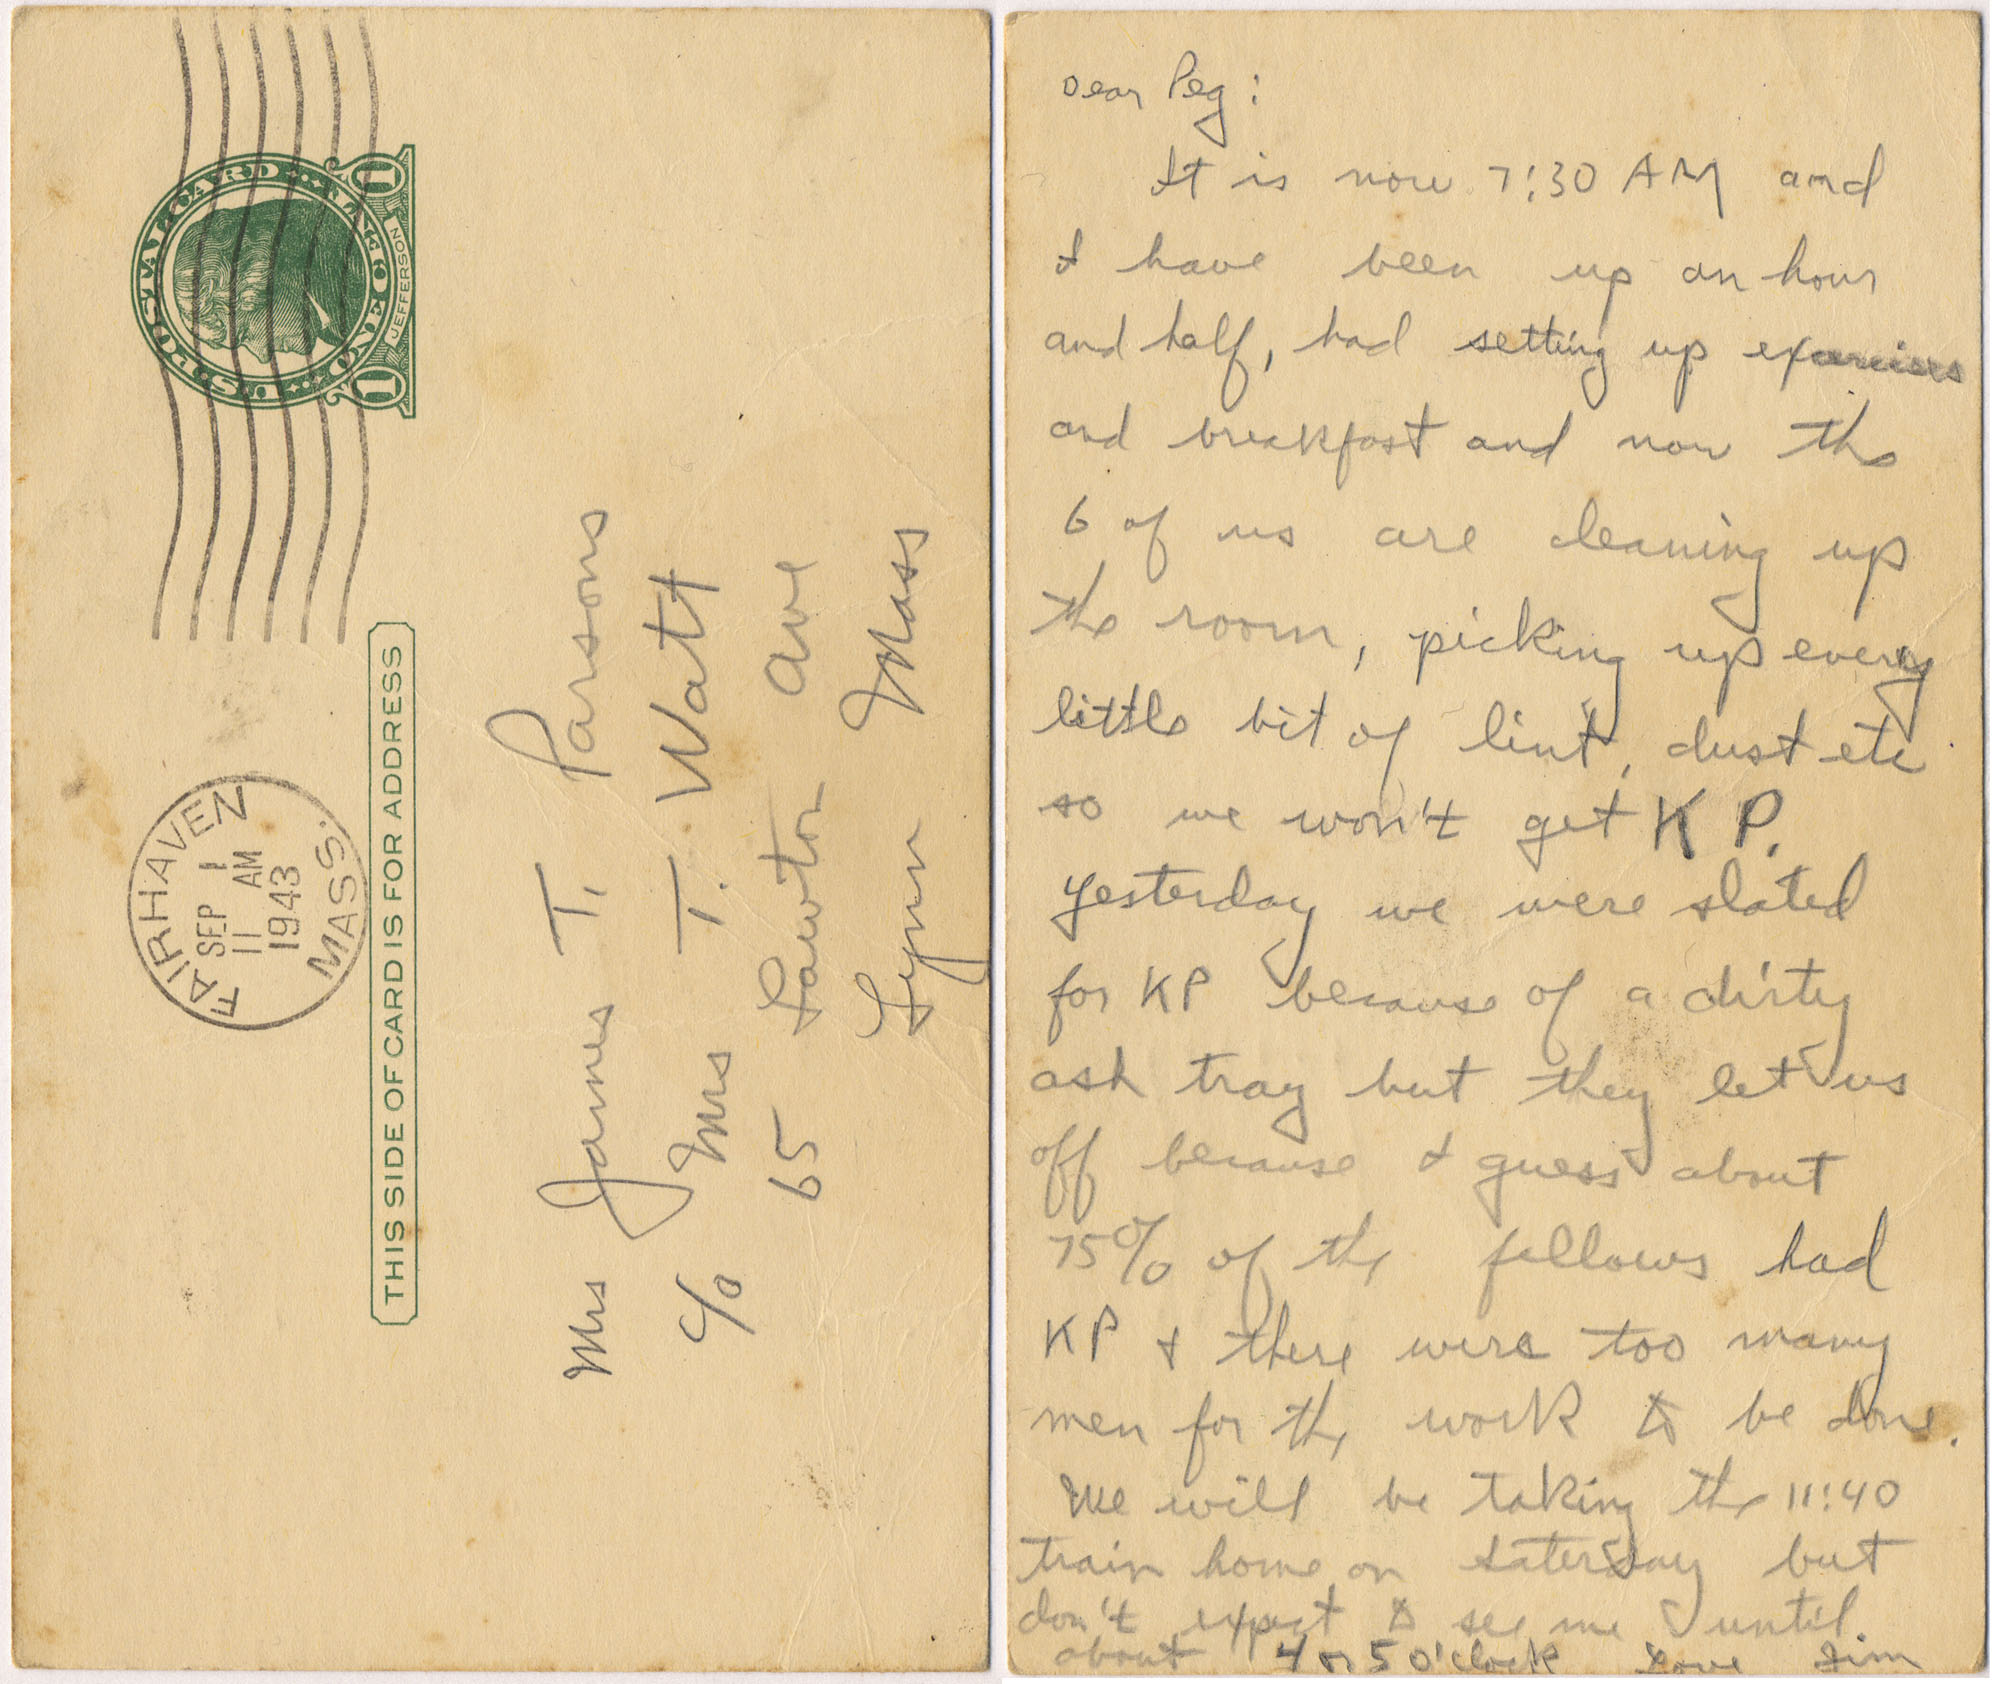 U.S. POSTAL CARD
ONE CENT
1 1
JEFFERSON
FAIRHAVEN
SEP 1
11 AM
1943
MASS.
THIS SIDE OF CARD IS FOR ADDRESS
Mrs James T. Parsons
c/o Mrs T. Watt
65 Lawton Ave
Lynn Mass
Dear Peg:
It is now 7:30 AM and
I have been up an hour
and half, had setting up exercises
and breakfast and now the
6 of us are cleaning up
the room, picking up every
little bit of lint, dust etc
so we won't get KP.
Yesterday we were slated
for KP because of a dirty
ash tray but they let us
off because I guess about
75% of the fellows had
KP & there were too many
men for the work to be done.
We will be taking the 11:40
train home on Saterday but
don't expect to see me until
about 4 or 5 o'clock Love Jim